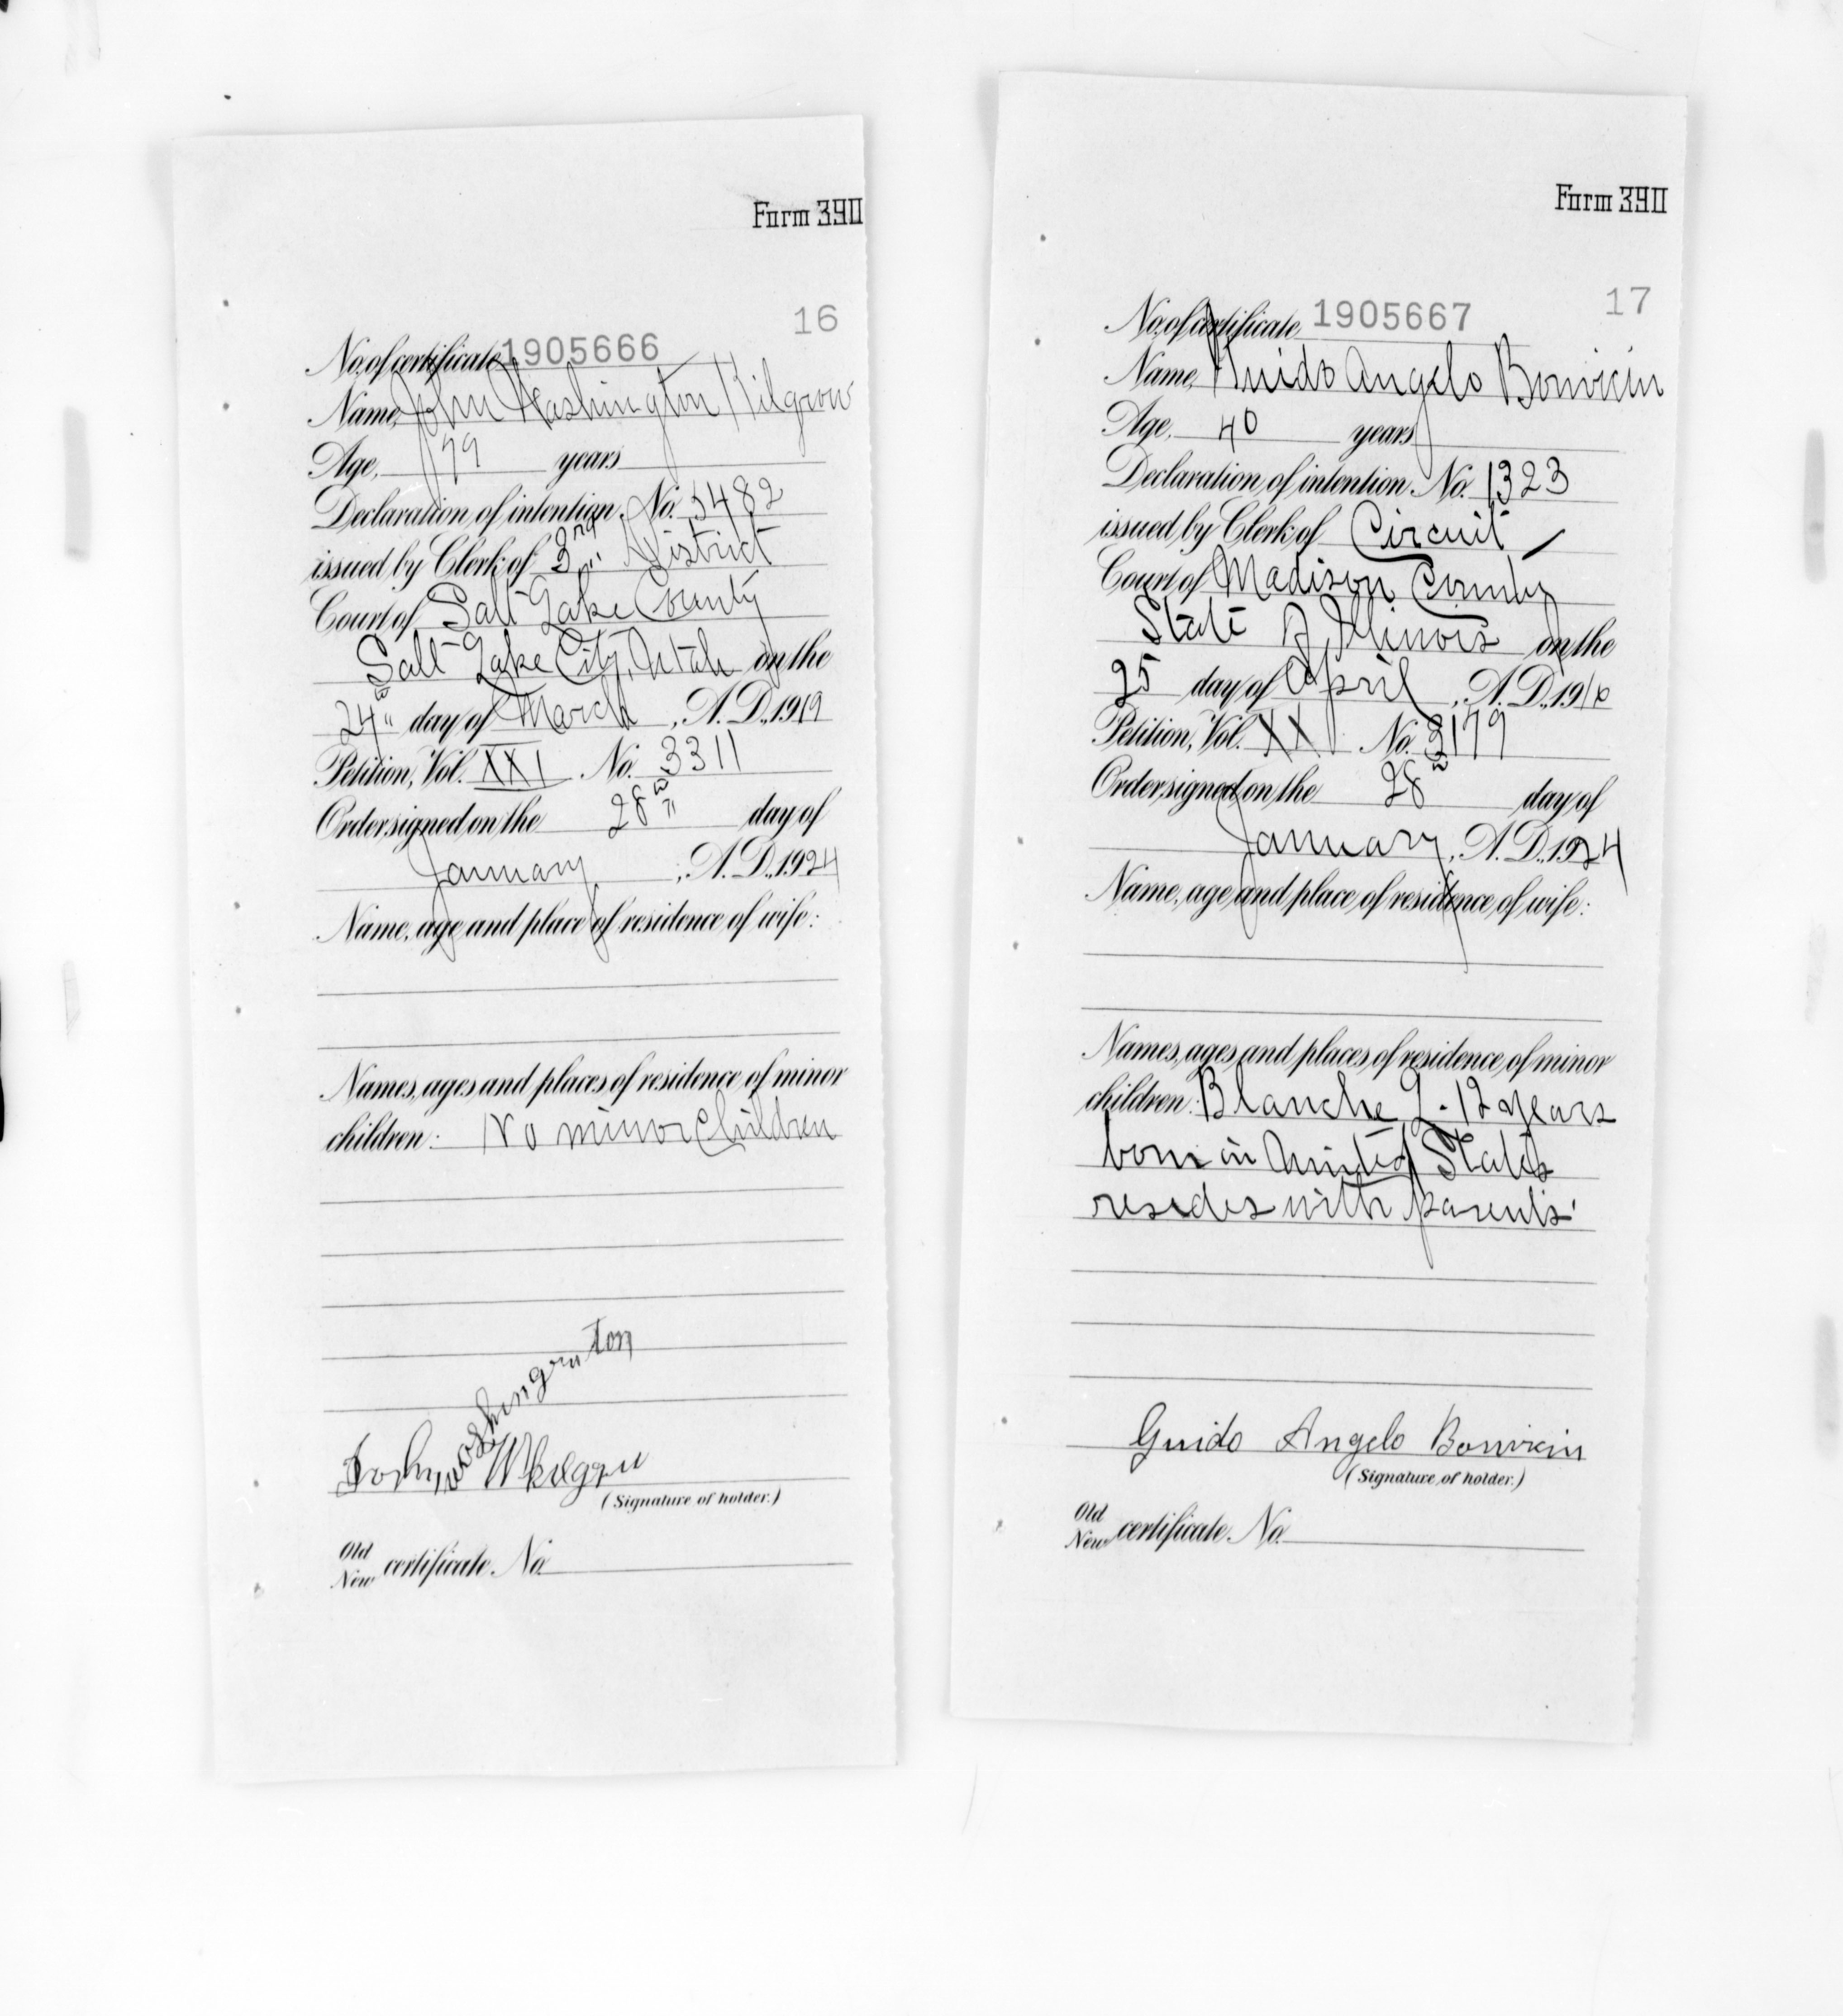 Form 390
16
No. of certificate 1905666
Name, John Washington Kilgrow
Age, 79 years
Declaration of intention, No. 5482
issued by Clerk of 3rd District
Court of Salt Lake County
Salt Lake City, Utah on the
24" day of March, A. D., 1919
Petition, Vol. XXI No. 3311
Order signed on the 28" day of
January, A. D., 1924
Name, age and place of residence of wife:
Names, ages and places of residence of minor
children: No minor children
(Signature of holder.)
Old
New certificate No.
Form 390
17
No. of certificate 1905667
Name, Guido Angelo Bonvicin
Age, 40 years
Declaration of intention No. 1323
issued by Clerk of Circuit
Court of Madison County
State of Illinois on the
25 day of April, A. D., 191
Petition, Vol. XX No. 3179
Order signed on the 28 day of
January, A. D., 1924
Name, age and place of residence of wife:
Names, ages and places of residence of minor
children: Blanche 12 years
born in United States
resides with parents.
Guido Angelo Bonvicin
(Signature of holder.)
Old
New certificate No.